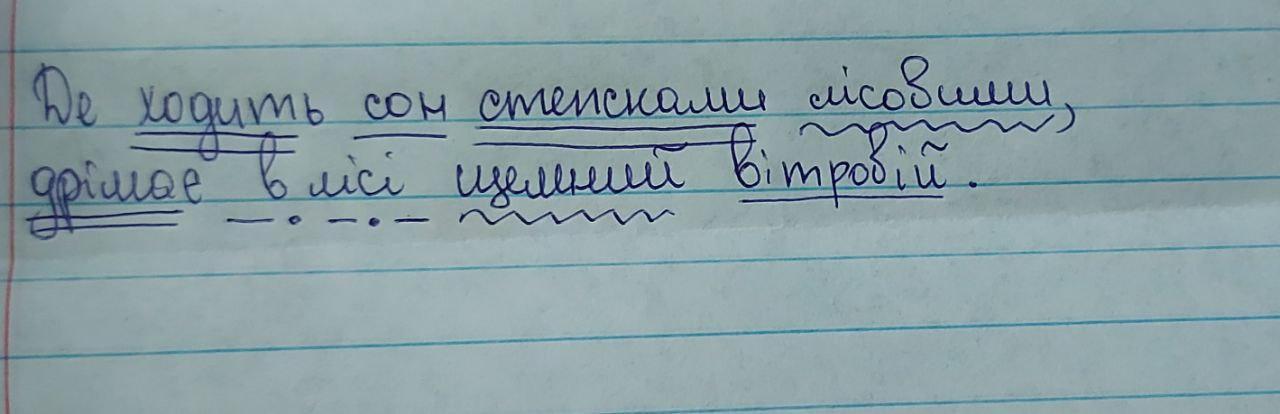 Де ходить сон стежками лісовими,
дрімає в лісі щемний вітровій.